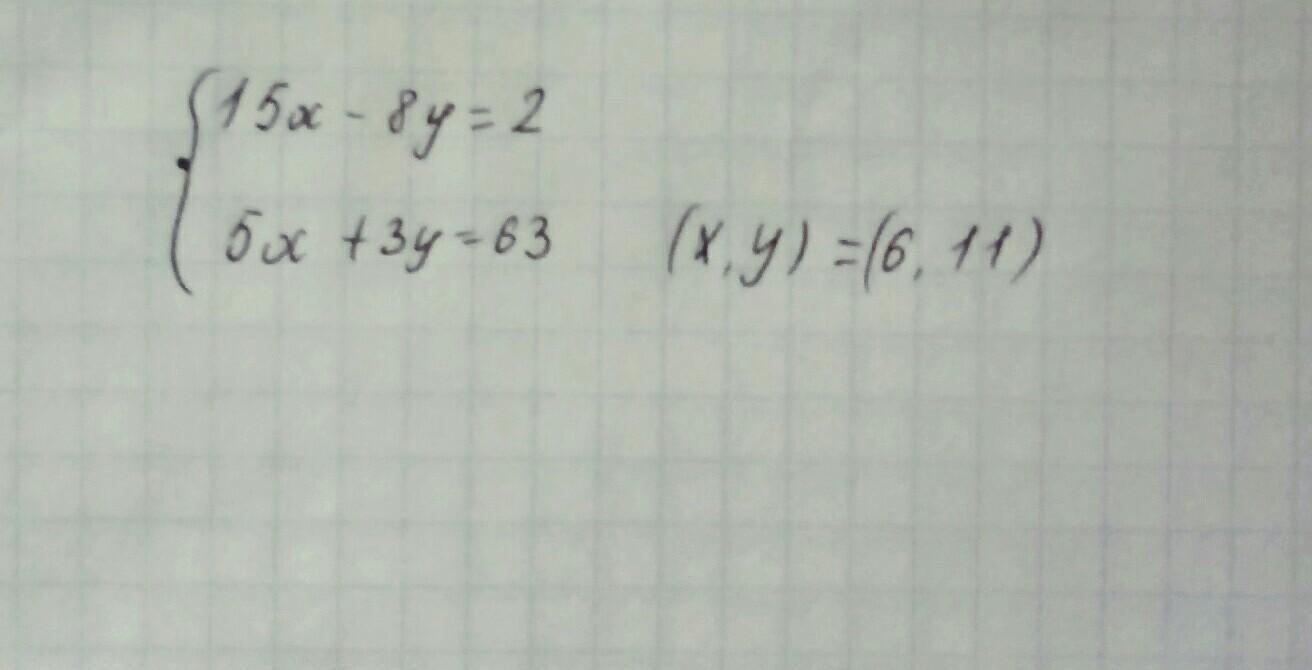 15x - 8y = 2
5x + 3y = 63 (x, y) = (6, 11)